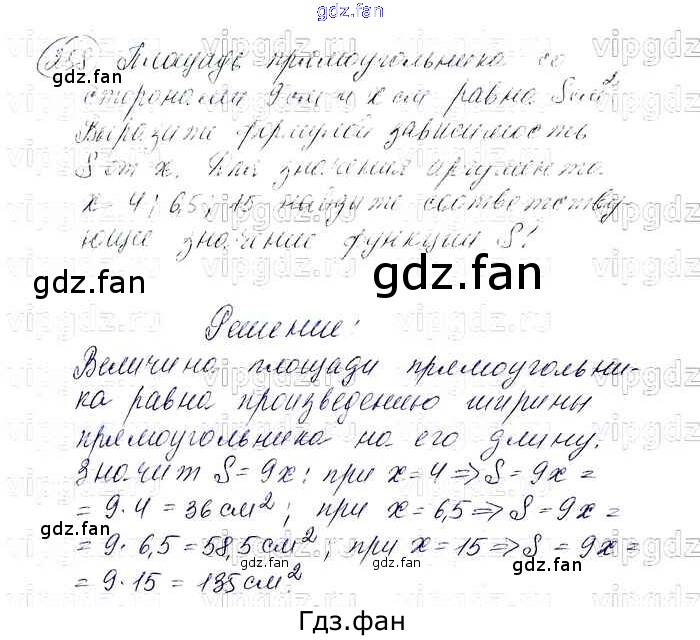 gdz.fan
358 Площадь прямоугольника со
сторонами 9 см и x см равна S см²
Выразите формулой зависимость
S от x. Для значения аргумента
x = 4; 6,5; 15 найдите соответству-
ющие значение функции S!
gdz.fan
gdz.fan
gdz.fan
Решение:
Величина площади прямоугольни-
ка равна произведению ширины
прямоугольника на его длину.
Значит S = 9x: при x = 4 => S = 9x =
= 9 · 4 = 36 см²; при x = 6,5 => S = 9x =
= 9 · 6,5 = 58,5 см²; при x = 15 => S = 9x =
= 9 · 15 = 135 см².
gdz.fan
gdz.fan
gdz.fan
Гдз.фан